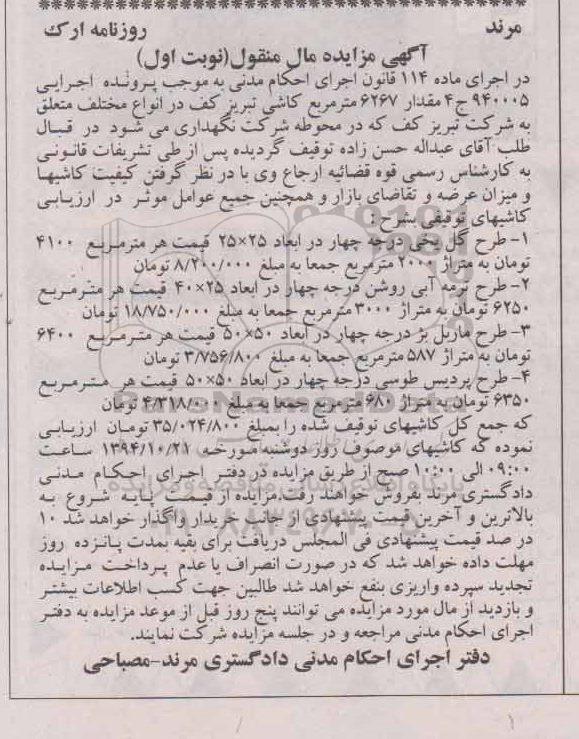 مرند روزنامه ارک
آگهی مزایده مال منقول(نوبت اول)
در اجرای ماده ۱۱۴ قانون اجرای احکام مدنی به موجب پرونده اجرایی
۹۴۰۰۰۵ ج۴ مقدار ۶۲۶۷ مترمربع کاشی تبریز کف در انواع مختلف متعلق
به شرکت تبریز کف که در محوطه شرکت نگهداری می شود در قبال
طلب آقای عبداله حسن زاده توقیف گردیده پس از طی تشریفات قانونی
به کارشناس رسمی قوه قضائیه ارجاع وی با در نظر گرفتن کیفیت کاشیها
و میزان عرضه و تقاضای بازار و همچنین جمیع عوامل موثر در ارزیابی
کاشیهای توقیفی بشرح :
۱- طرح گل یخی درجه چهار در ابعاد ۲۵×۲۵ قیمت هر مترمربع ۴۱۰۰
تومان به متراژ ۲۰۰۰ مترمربع جمعا به مبلغ ۸/۲۰۰/۰۰۰ تومان
۲- طرح ترمه آبی روشن درجه چهار در ابعاد ۲۵×۴۰ قیمت هر مترمربع
۶۲۵۰ تومان به متراژ ۳۰۰۰ مترمربع جمعا به مبلغ ۱۸/۷۵۰/۰۰۰ تومان
۳- طرح ماربل بژ درجه چهار در ابعاد ۵۰×۵۰ قیمت هر مترمربع ۶۴۰۰
تومان به متراژ ۵۸۷ مترمربع جمعا به مبلغ ۳/۷۵۶/۸۰۰ تومان
۴- طرح پردیس طوسی درجه چهار در ابعاد ۵۰×۵۰ قیمت هر مترمربع
۶۳۵۰ تومان به متراژ ۶۸۰ مترمربع جمعا به مبلغ ۴/۳۱۸/۰۰۰ تومان
که جمع کل کاشیهای توقیف شده را بمبلغ ۳۵/۰۲۴/۸۰۰ تومان ارزیابی
نموده که کاشیهای موصوف روز دوشنبه مورخه ۱۳۹۴/۱۰/۲۱ ساعت
۰۹:۰۰ الی ۱۰:۰۰ صبح از طریق مزایده در دفتر اجرای احکام مدنی
دادگستری مرند بفروش خواهند رفت.مزایده از قیمت پایه شروع به
بالاترین و آخرین قیمت پیشنهادی از جانب خریدار واگذار خواهد شد ۱۰
در صد قیمت پیشنهادی فی المجلس دریافت برای بقیه بمدت پانزده روز
مهلت داده خواهد شد که در صورت انصراف یا عدم پرداخت مزایده
تجدید سپرده واریزی بنفع خواهد شد طالبین جهت کسب اطلاعات بیشتر
و بازدید از مال مورد مزایده می توانند پنج روز قبل از موعد مزایده به دفتر
اجرای احکام مدنی مراجعه و در جلسه مزایده شرکت نمایند.
دفتر اجرای احکام مدنی دادگستری مرند-مصباحی